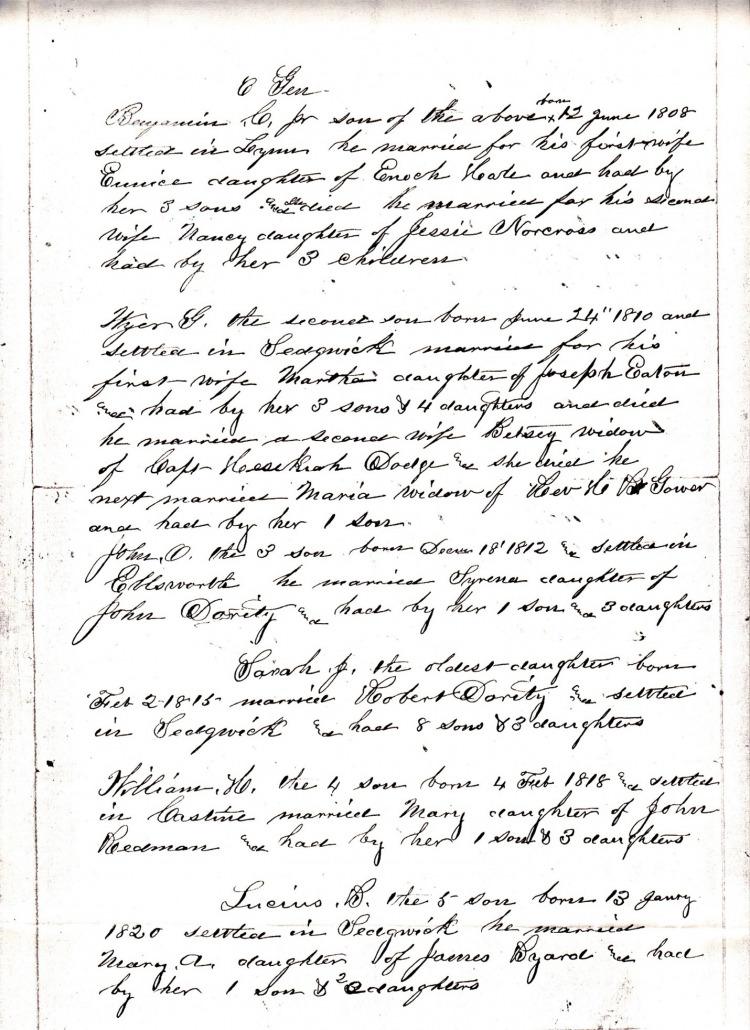 6 Gen
Benjamin C. Jr son of the above born 12 June 1808
settled in Lynn he married for his first wife
Eunice daughter of Enoch Hale and had by
her 3 sons and she died he married for his second
wife Nancy daughter of Jessie Norcross and
had by her 3 children
Wyer G. the second son born June 24" 1810 and
settled in Sedgwick married for his
first wife Martha daughter of Joseph Eaton
and had by her 3 sons & 4 daughters and died
he married a second wife Betsey widow
of Capt Hesekiah Dodge and she died he
next married Maria widow of Rev H Gower
and had by her 1 son
John. O. the 3 son born 18' 1812 & settled in
Ellsworth he married Syrena daughter of
John Dority and had by her 1 son and 3 daughters
Sarah J. the oldest daughter born
Feb 2-1815 married Robert Dority and settled
in Sedgwick and had 8 sons & 3 daughters
William. H. the 4 son born 4 Feb 1818 and settled
in Castine married Mary daughter of John
Redman and had by her 1 son & 3 daughters
Lucius. B. the 5 son born 13 Janry
1820 settled in Sedgwick he married
Mary. A. daughter of James Byard and had
by her 1 son & 2 daughters